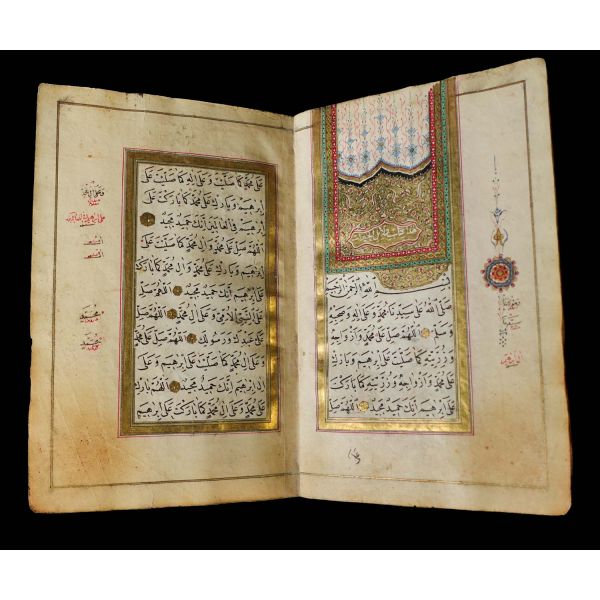 بسم الله الرحمن الرحيم
صلى الله على سيدنا محمد وعلى اله وصحبه
وسلم اللهم صل على محمد وازواجه
وذريته كما صليت على ابرهيم وبارك
على محمد وازواجه وذريته كما باركت
على ابرهيم انك حميد مجيد اللهم صل
على محمد كما صليت وعلى اله كما صليت على
ابرهيم وبارك على محمد كما باركت على
ابرهيم في العالمين انك حميد مجيد
اللهم صل على محمد وعلى ال محمد كما صليت على
ابرهيم وبارك على محمد وال محمد كما باركت
على ابرهيم انك حميد مجيد اللهم صل
على النبي الامي وعلى ال محمد اللهم صل
على محمد عبدك ورسولك اللهم صل على محمد
وعلى ال محمد كما صليت على ابرهيم وعلى
ال ابرهيم انك حميد مجيد اللهم بارك
على محمد وعلى ال محمد كما باركت على ابرهيم